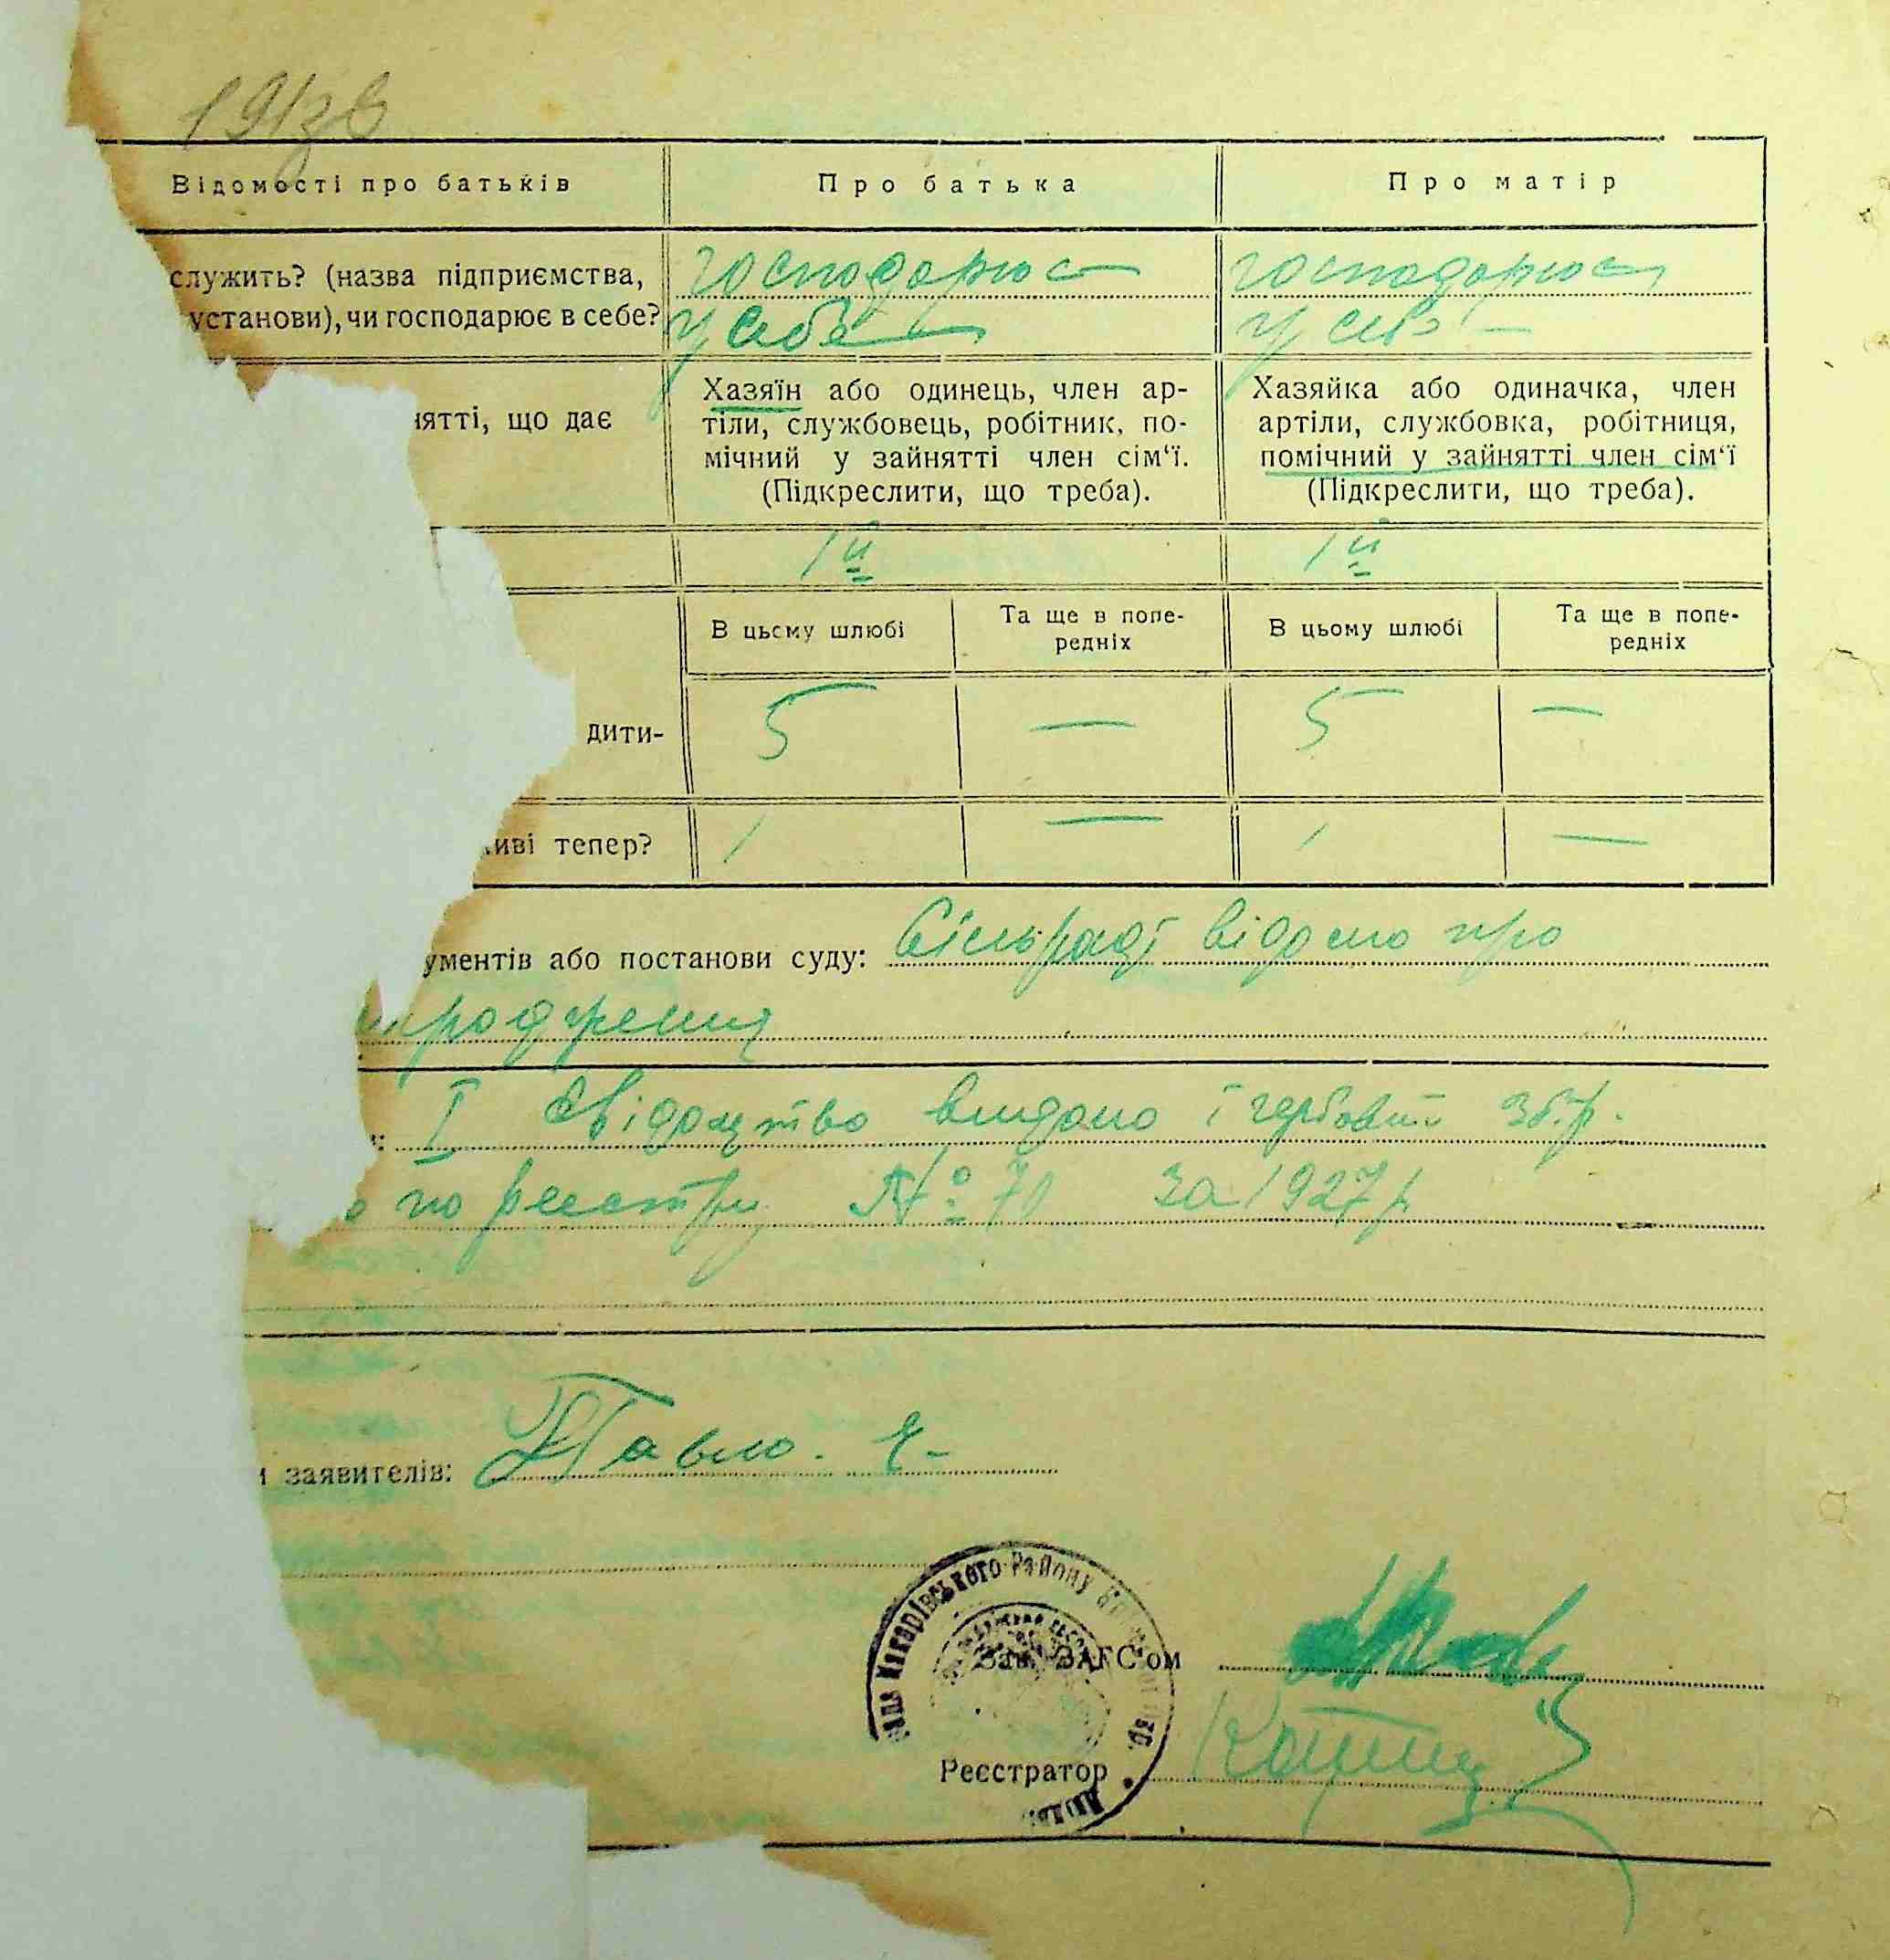 Відомості про батьків
Про батька
Про матір
служить? (назва підприємства,
установи), чи господарює в себе?
господарює
у себе
господарює
у себе
нятті, що дає
Хазяїн або одинець, член ар-
тіли, службовець, робітник, по-
мічний у зайнятті член сім‘ї.
(Підкреслити, що треба).
Хазяйка або одиначка, член
артіли, службовка, робітниця,
помічний у зайнятті член сім‘ї
(Підкреслити, що треба).
1й
1й
В цьому шлюбі
Та ще в попе-
редніх
В цьому шлюбі
Та ще в попе-
редніх
дити-
5
—
5
—
иві тепер?
1
—
1
—
ументів або постанови суду: Сільраді відомо про
народження
: I свідоцтво видано і гербовий зб.
по реєстру № 71 за 1927 р
заявителів: Павло.
Макарівського Району
Зав. ЗАГС'ом
Реєстратор